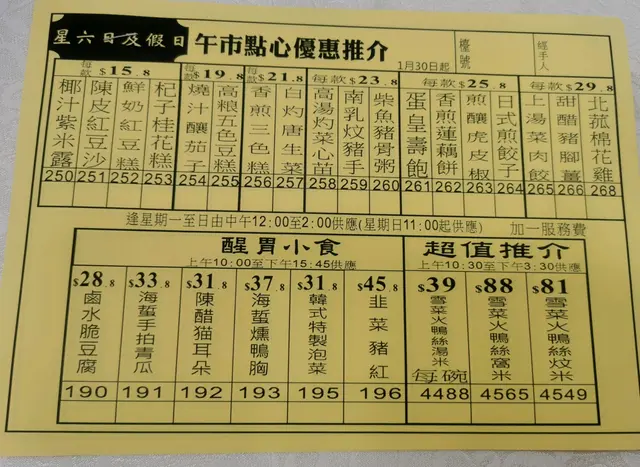 星六日及假日 午市點心優惠推介
1月30日起
檯號
經手人
每款$15.8
每款$19.8
每款$21.8
每款$23.8
每款$25.8
每款$29.8
椰汁紫米露 250
陳皮紅豆沙 251
鮮奶紅豆糕 252
杞子桂花糕 253
燒汁釀茄子 254
高粮五色豆糕 255
香煎三色糕 256
白灼唐生菜 257
高湯灼菜心苗 258
南乳炆豬手 259
柴魚豬骨粥 260
蛋皇壽飽 261
香煎蓮藕餅 262
煎釀虎皮椒 263
日式煎餃子 264
上湯菜肉餃 265
甜醋豬腳薑 266
北菰棉花雞 268
逢星期一至日由中午12:00至2:00供應(星期日11:00起供應) 加一服務費
醒胃小食
上午10:00至下午15:45供應
超值推介
上午10:30至下午3:30供應
$28.8 鹵水脆豆腐 190
$33.8 海蜇手拍青瓜 191
$31.8 陳醋猫耳朵 192
$37.8 海蜇燻鴨胸 193
$31.8 韓式特製泡菜 195
$45.8 韭菜豬紅 196
$39 雪菜火鴨絲湯米 每碗 4488
$88 雪菜火鴨絲窩米 4565
$81 雪菜火鴨絲炆米 4549